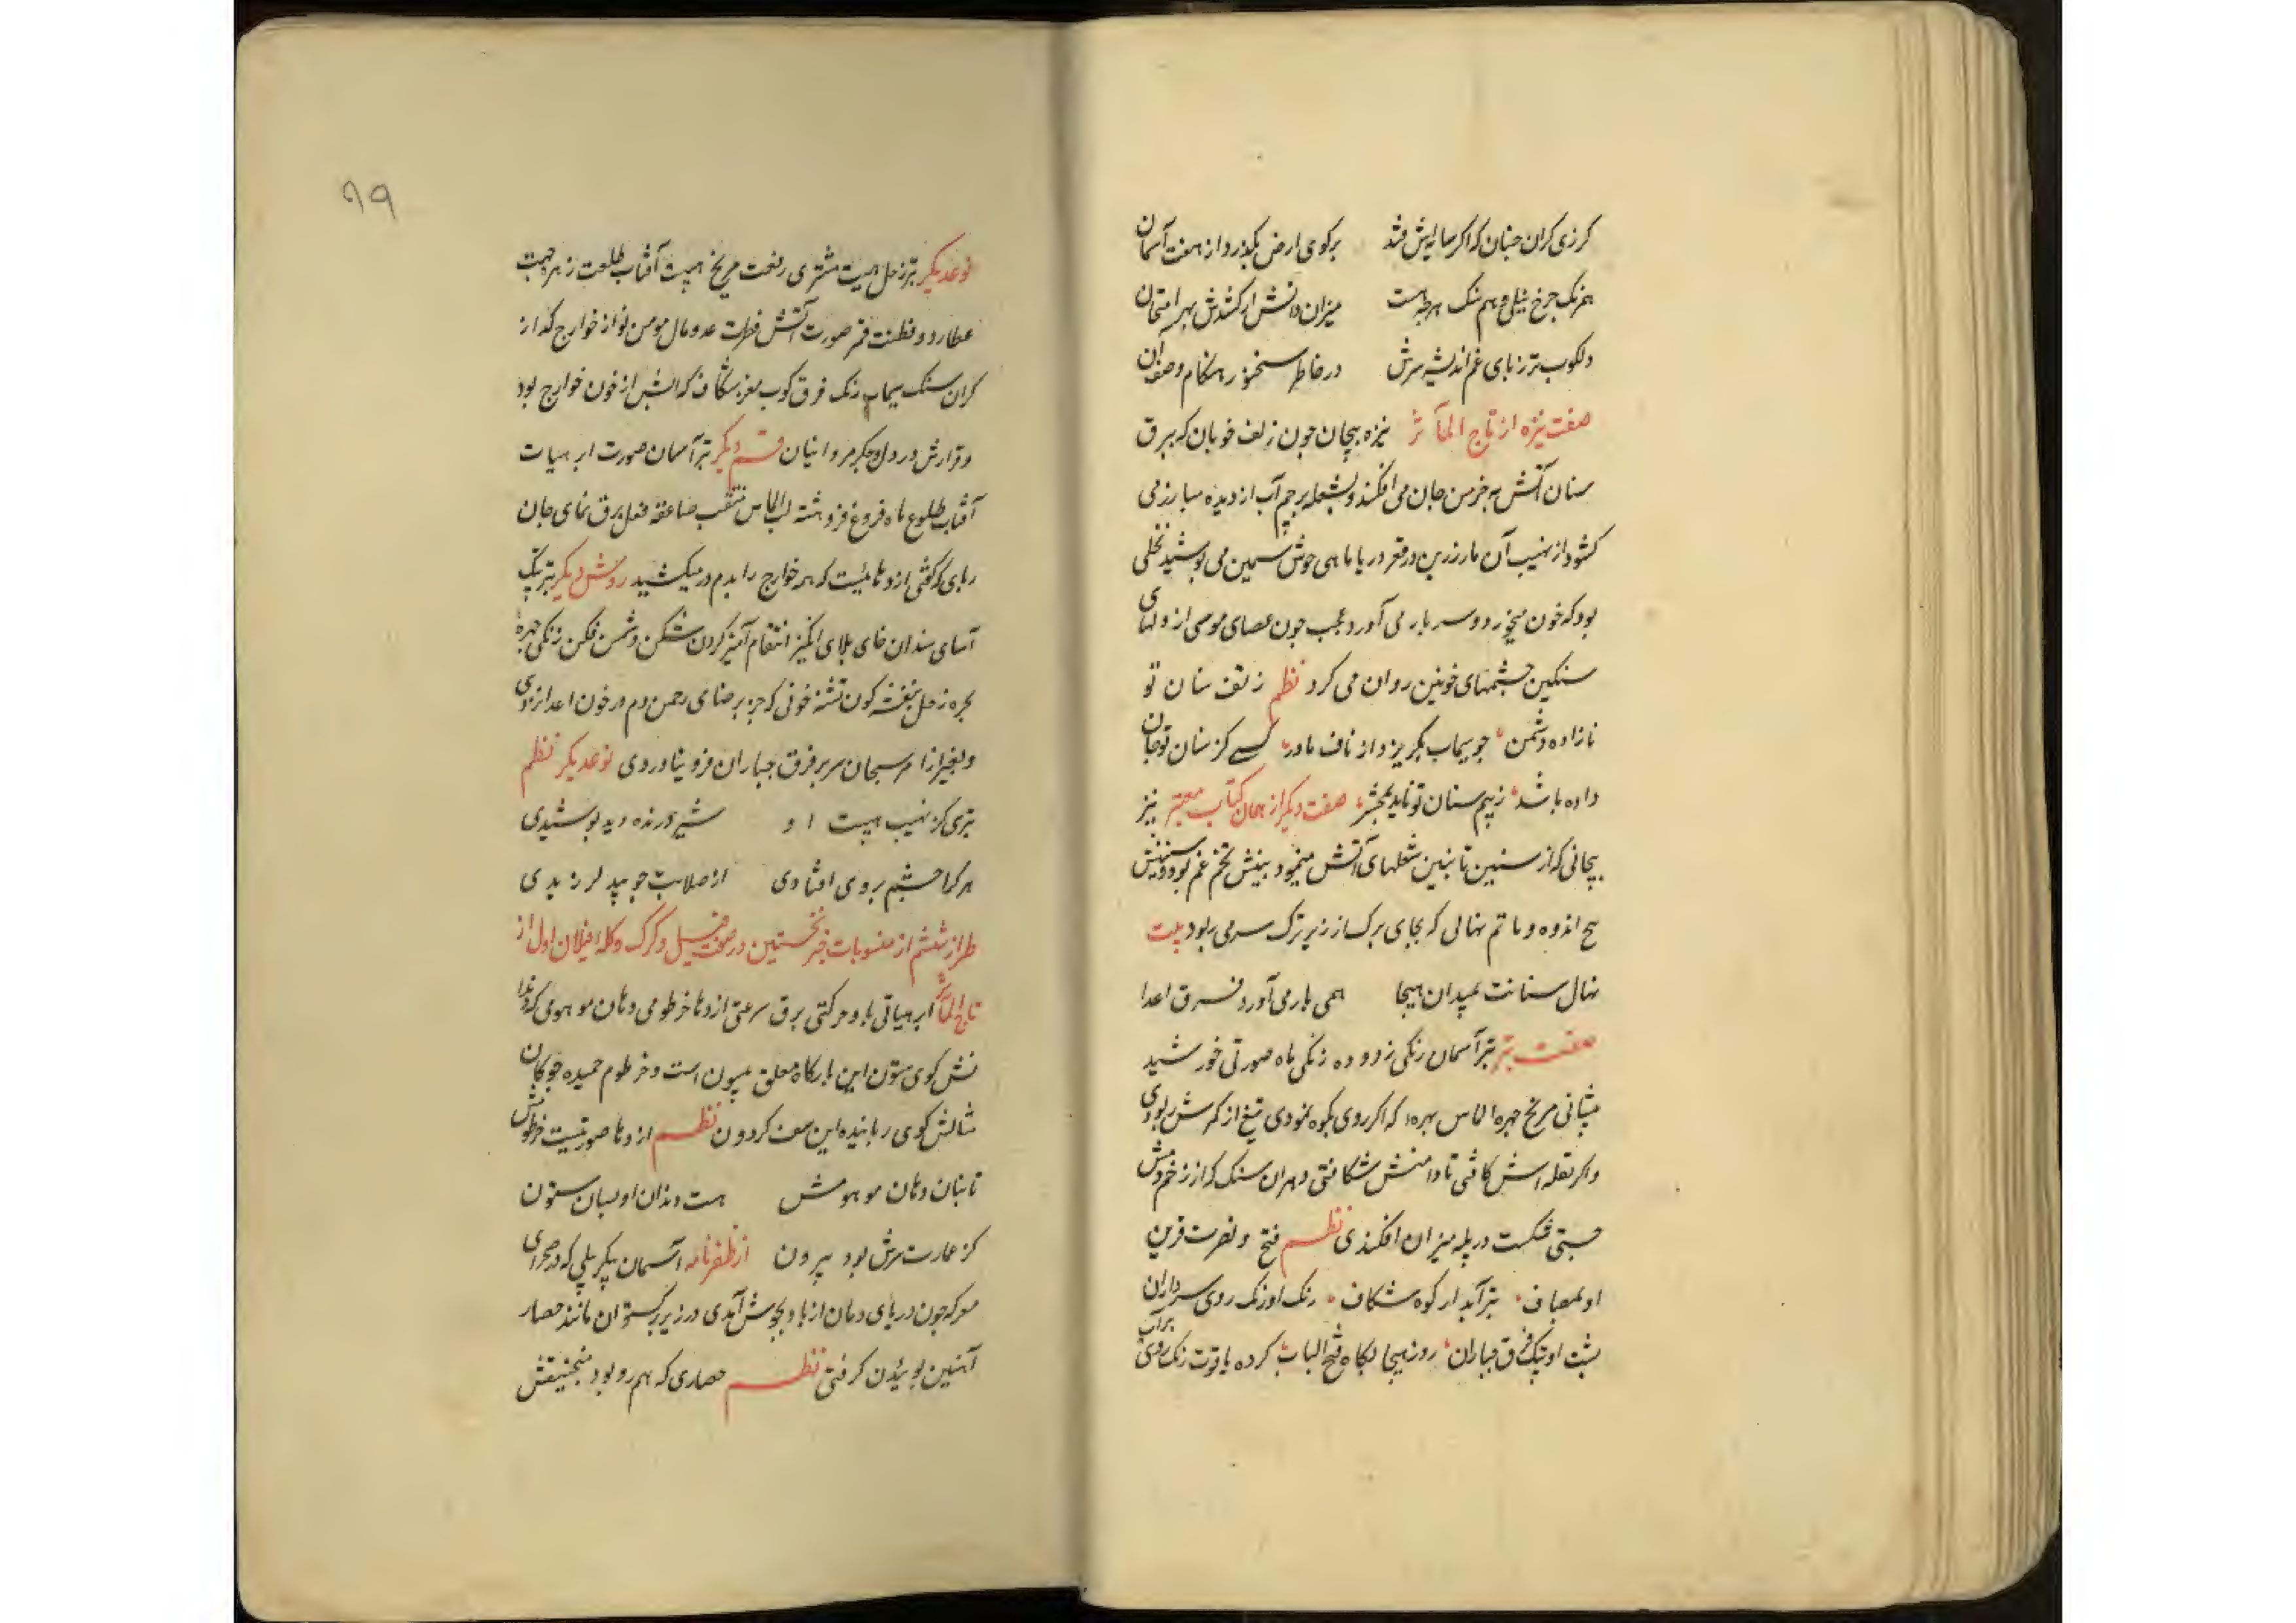 کرزی کران جنان که اکر سایه اش فتد برکوی ارض بکذرد از هفت آسمان
همرنک جرخ نیلی و هم سنک هرجه هست میزان دانش ار کشدش بهر امتحان
دلکوب تر ز بای غم اندیشه سرش در خاطر سخنور هنکام وصف آن
صفت نیزه از تاج المآثر نیزه بیجان جون زلف خوبان که ببرق
سنان آتش به خرمن جان می افکند و بشعله برجم آب از دیده مبارز می
کشود از نهیب آن مار زرین در قعر دریا ماهی جوش سیمین می بوشید نخلی
بود که خون میخورد و سر بار می آورد عجب جون عصای موسی از دلهای
سنکین جشمهای خونین روان می کرد نظم ز تف سنان تو
نازاده دشمن جو سیماب بکریزد از ناف مادر کسی کز سنان تو جان
داده باشد ز بیم سنان تو ناید بمحشر صفت دیکر از همان کتاب معتبر نیز
بیجانی که از سنین تابنین شعلهای آتش مینمود بینش تخم غم بود و
بیخ اندوه و ماتم نهالی که بجای برک از زیر ترک سر می ربود بیت
نهال سنانت بمیدان هیجا همی بار می آورد فرق اعدا
صفت تبر تبر آسمان رنکی زدوده زنکی ماه صورتی خورشید
مریخ جهره الماس بهره که اکر روی بکوه نمودی تیغ از کمرش ربودی
واکر بقله اش کافتی تا دامنش شکافتی و هران سنک که از زخم دمش
جستی شکست در پله میزان افکندی نظم فتح و نصرت قرین
او بمصاف تبر آبدار کوه شکاف رنک او زنک روی سرداران
بشت او بتک فرق جباران روز هیجا بکاه فتح الباب کرده یاقوت رنک روی
برآب
۹۹
نوعدیکر تبر زحل هیبت مشتری رفعت مریخ هیبت آفتاب طلعت زهره جهت
عطارد و فطنت قمر صورت آتش فطرت عدو مال مومن نواز خوارج کداز
کران سنک سیماب رنک فرق کوب مغز شکاف که از خون خوارج بود
و قرارش در دل و جکر مروانیان قسم دیکر تبر آسمان صورت ابر هیات
آفتاب طلوع ماه فروغ فرو هشته لب الماس صاعقه فعل برق نمای جان
ربای که کفتی ازدهائیست که هر خوارج را بدم در میکشید روش دیکر تبر بتک
آسای سندان خای بلای انکیز انتقام آمیز کردن شکن دشمن فکن زنکی جهره
زحل بنفشه کون تشنه خونی که جز برضای رحمن دم در خون اعدا نزدی
و بغیر از امر سبحان سر بر فرق جباران فرو نیاوردی نوعدیکر نظم
تبری کز نهیب هیبت او شیر درنده بوشیدی
هر کرا جشم بروی افتادی از صلابت جو بید لرزیدی
طراز ششم از منسوبات جبر نخستین در صفت فیل و کرک و کله فیلان اول از
تاج المآثر ابر هیاتی باد حرکتی برق سرعتی ازدها خرطومی دهان موهومی که
کوی ستون این بارکاه معلق است و خرطوم خمیده جوکان
مثالش کوی رباینده این سقف کردون نظم ازدها صورتیست خرطومش
تابنان دهان موهومش هست دندان او بسان ستون
کز عمارت سرش بود بیرون از ظفرنامه آسمان پیکر پیلی که در صحرای
معرکه جون دریای دمان از باد بجوش آمدی در زیر برکستوان مانند حصار
آهنین بوئیدن کرفتی نظم حصاری که هم رو بود منجنیقش